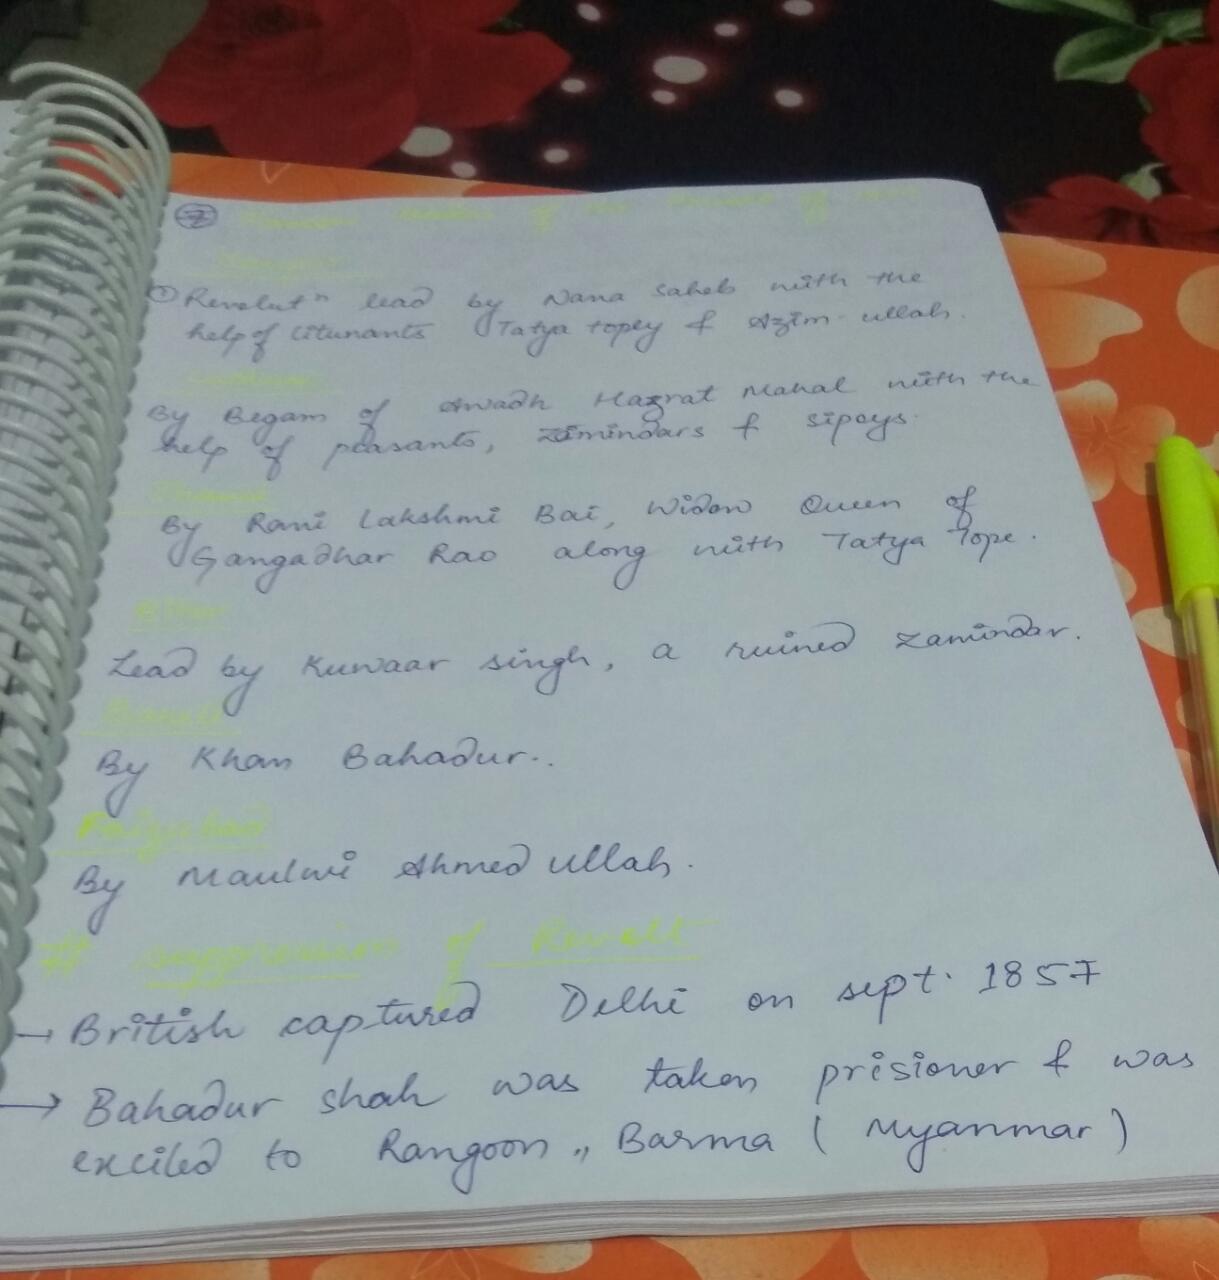 7
of the of
① Revolutⁿ lead by Nana Saheb with the
help of litunants Tatya topey & Azim-ullah.
By Begam of Awadh Hazrat Mahal with the
help of peasants, zamindars & sipoys.
By Rani Lakshmi Bai, Widow Queen of
Gangadhar Rao along with Tatya Tope.
Lead by Kuwaar singh, a ruined zamindar.
By Khan Bahadur..
Faizabad
By Maulwi Ahmed ullah.
# suppression of Revolt
→ British captured Delhi on sept. 1857
→ Bahadur shah was taken prisioner & was
exciled to Rangoon,, Barma (Myanmar)